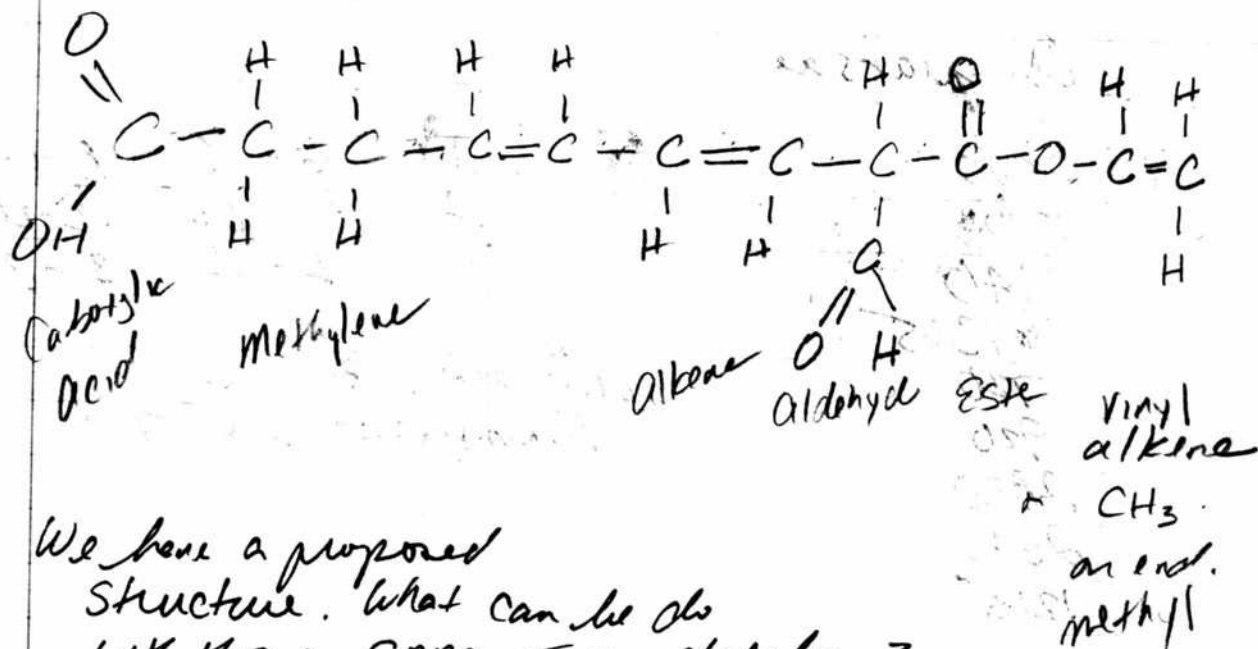 O
H H H H H O H H
C - C - C - C=C - C = C - C - C - O - C = C
OH H H H H C H
O H
Cabotylic
acid
Methylene
alkene
aldehyd
Este
vinyl
alkene
CH3
on end.
methyl
We have a proposed
structure. What can be do